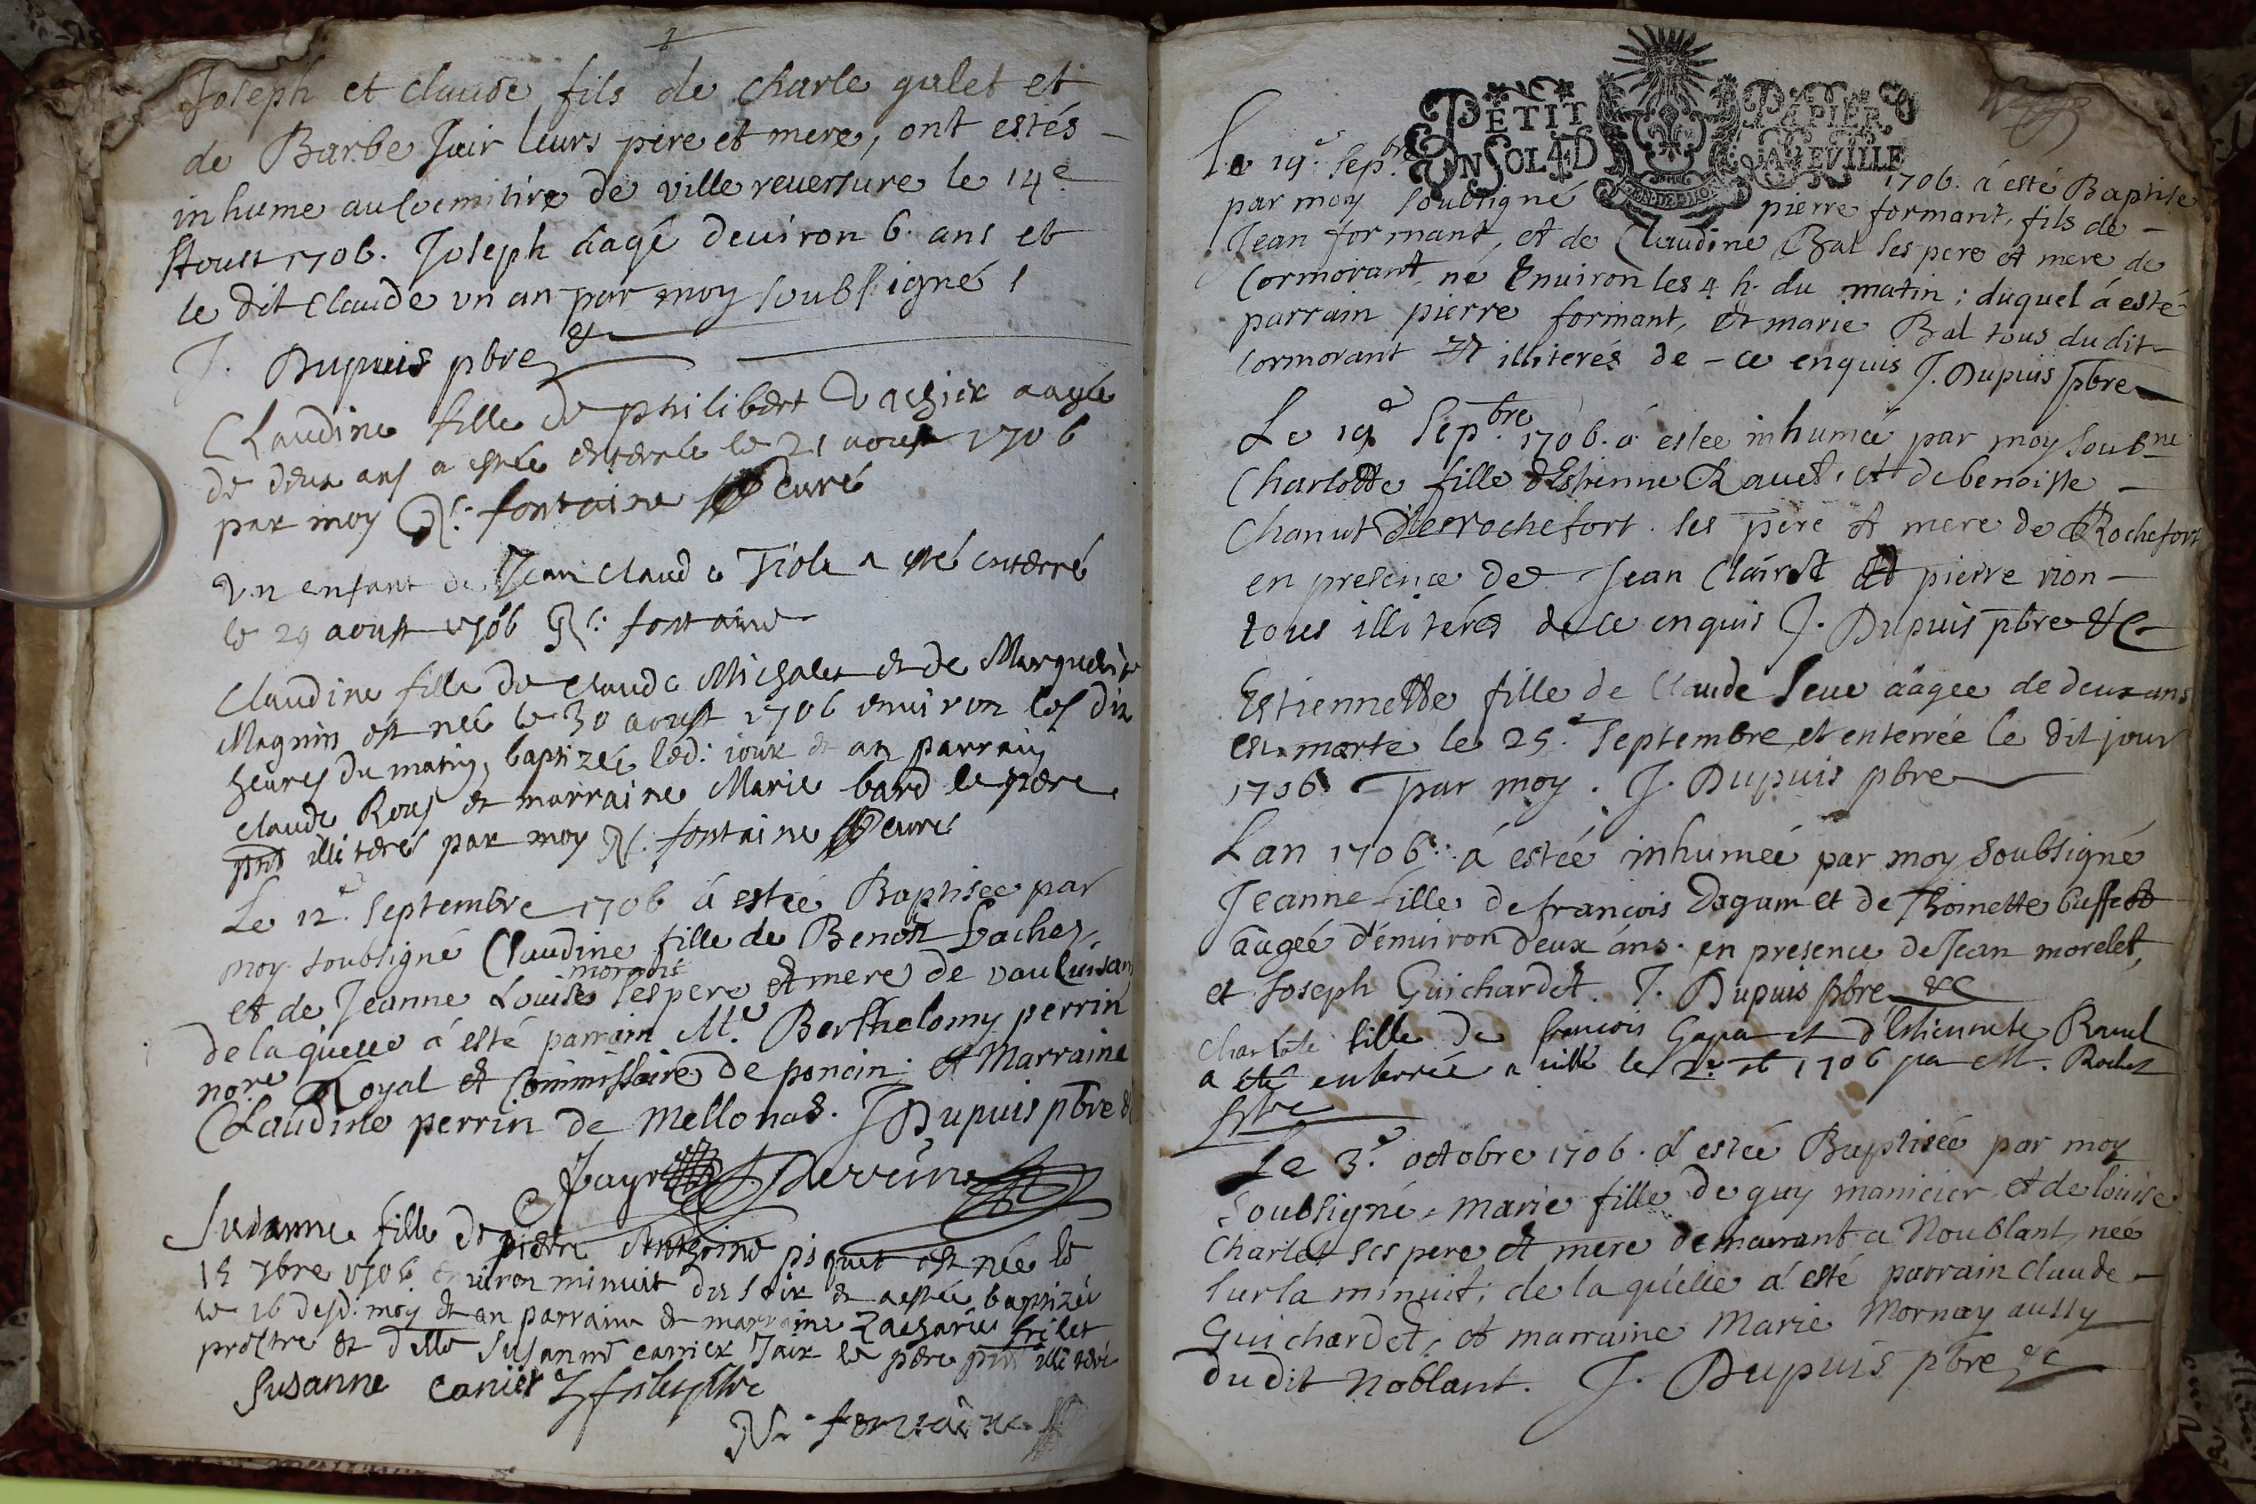 Joseph et claude fils de charle galet et
de Barbe Jair leurs pere et mere, ont estés
inhume au Coemitire de ville reuersure le 14e
Aoust 1706. Joseph áagé deuiron 6. ans et
le dit Claude un an par moy soubsigné
J. Dupuis pbre &
Claudine fille de philibert Vachier aagée
de deux ans a estée enterrée le 21 aoust 1706
par moy N: fontaine curé
Un enfant de Jean Claude Tiole a esté enterré
le 29 aoust 1706 N: fontaine
Claudine fille de Claude Michalet et de Marguerite
Magnin est née le 30 aoust 1706 enuiron les dix
heures du matin, baptizée led: jour et an parrain
Claude Rous et marraine Marie bard le pere
pnt illiterés par moy N. fontaine curé
Le 12e. Septembre 1706 á estée Baptisee par
moy soubsigné Claudine fille de Benoit Vacher,
morgois
et de Jeanne Louise ses pere et mere de vauluisan
de la quelle á esté parrain Me. Berthelomy perrin
nore. Royal et Commissaire de poncin; et Marraine
Claudine perrin de Mellonas. J Dupuis pbre &
Perrin
Susanne fille de pierre Anthoine piquet est née le
15 7bre 1706 enuiron minuit du soir et a estée baptizée
le 16 desd: moy et an parrain et marraine Zacharie frilet
prestre et dlle Susanne carrier Jair le pere pnt illiteré
Susanne Carrier Z frilet pbre
N. fontaine
PETIT PAPIER
UN SOL 4 D LA FEVILLE
GEN. DE DIION
Le 19e. Sepbre 1706. á esté Baptise
par moy soubsigné pierre formant, fils de
Jean formant, et de Claudine Bal ses pere et mere de
Cormorant, né Enuiron les 4 h. du matin; duquel á esté
parrain pierre formant, et marie Bal tous dudit
Cormorant et illiterés de - ce enquis J. Dupuis pbre
Le 19e Sepbre. 1706. á estee inhumée par moy soubné
Charlotte fille d'Estienne Rauet, et de benoiste
Chanut de rochefort ses pere et mere de Rochefort
en presence de Jean Clairet et pierre rion
tous illiterés de ce enquis J. Dupuis pbre &c
Estiennette fille de Claude Seue áagee de deux ans
est morte le 25e. Septembre, et enterrée le dit jour
1706 par moy. J. Dupuis pbre
Lan 1706: á estée inhumée par moy Soubsigné
Jeanne fille de francois Dagam et de Thoinette buffet
áagée d'énuiron deux áns. en presence de Jean morelet,
et Joseph Guichardet. J. Dupuis pbre &c
Charlote fille de francois Gapa et d'Estiennete Rauel
a été enterrée a ville le 2e 1706 par M. Rochet
pbre
Le 3e. octobre 1706. á estée Baptisée par moy
soubsigné, marie fille de guy manicier, et de louise
Charlet ses pere et mere demeurant a Noublant, née
sur la minuit; de la quelle á esté parrain claude
Guichardet, et marraine Marie Mornay aussy
du dit Noblant. J. Dupuis pbre &c